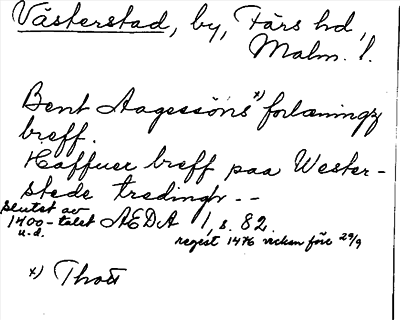 Västerstad, by, Färs hd,
Malm. l.
Bent Aagessöns x) forlæningz
breff.
Haffuer breff paa Wester-
stede tredingh - -
slutet av
1400-talet AEDA 1, s. 82.
u.d.
regest 1476 veckan före 29/9
x) Thott